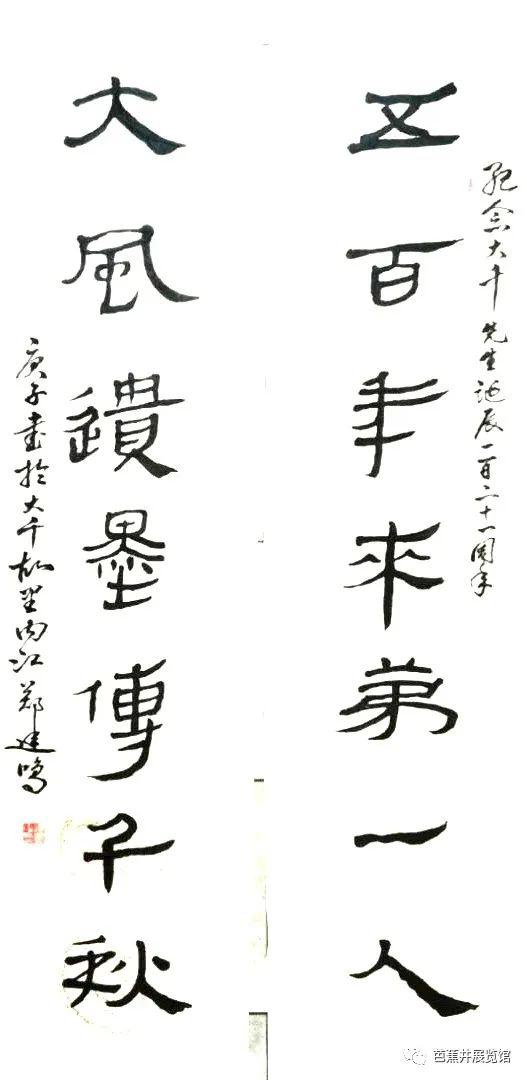 纪念大千先生诞辰一百二十一周年
五百年來弟一人
大風遺墨傳千秋
庚子書於大千故里内江郑建鸣
芭蕉井展览馆